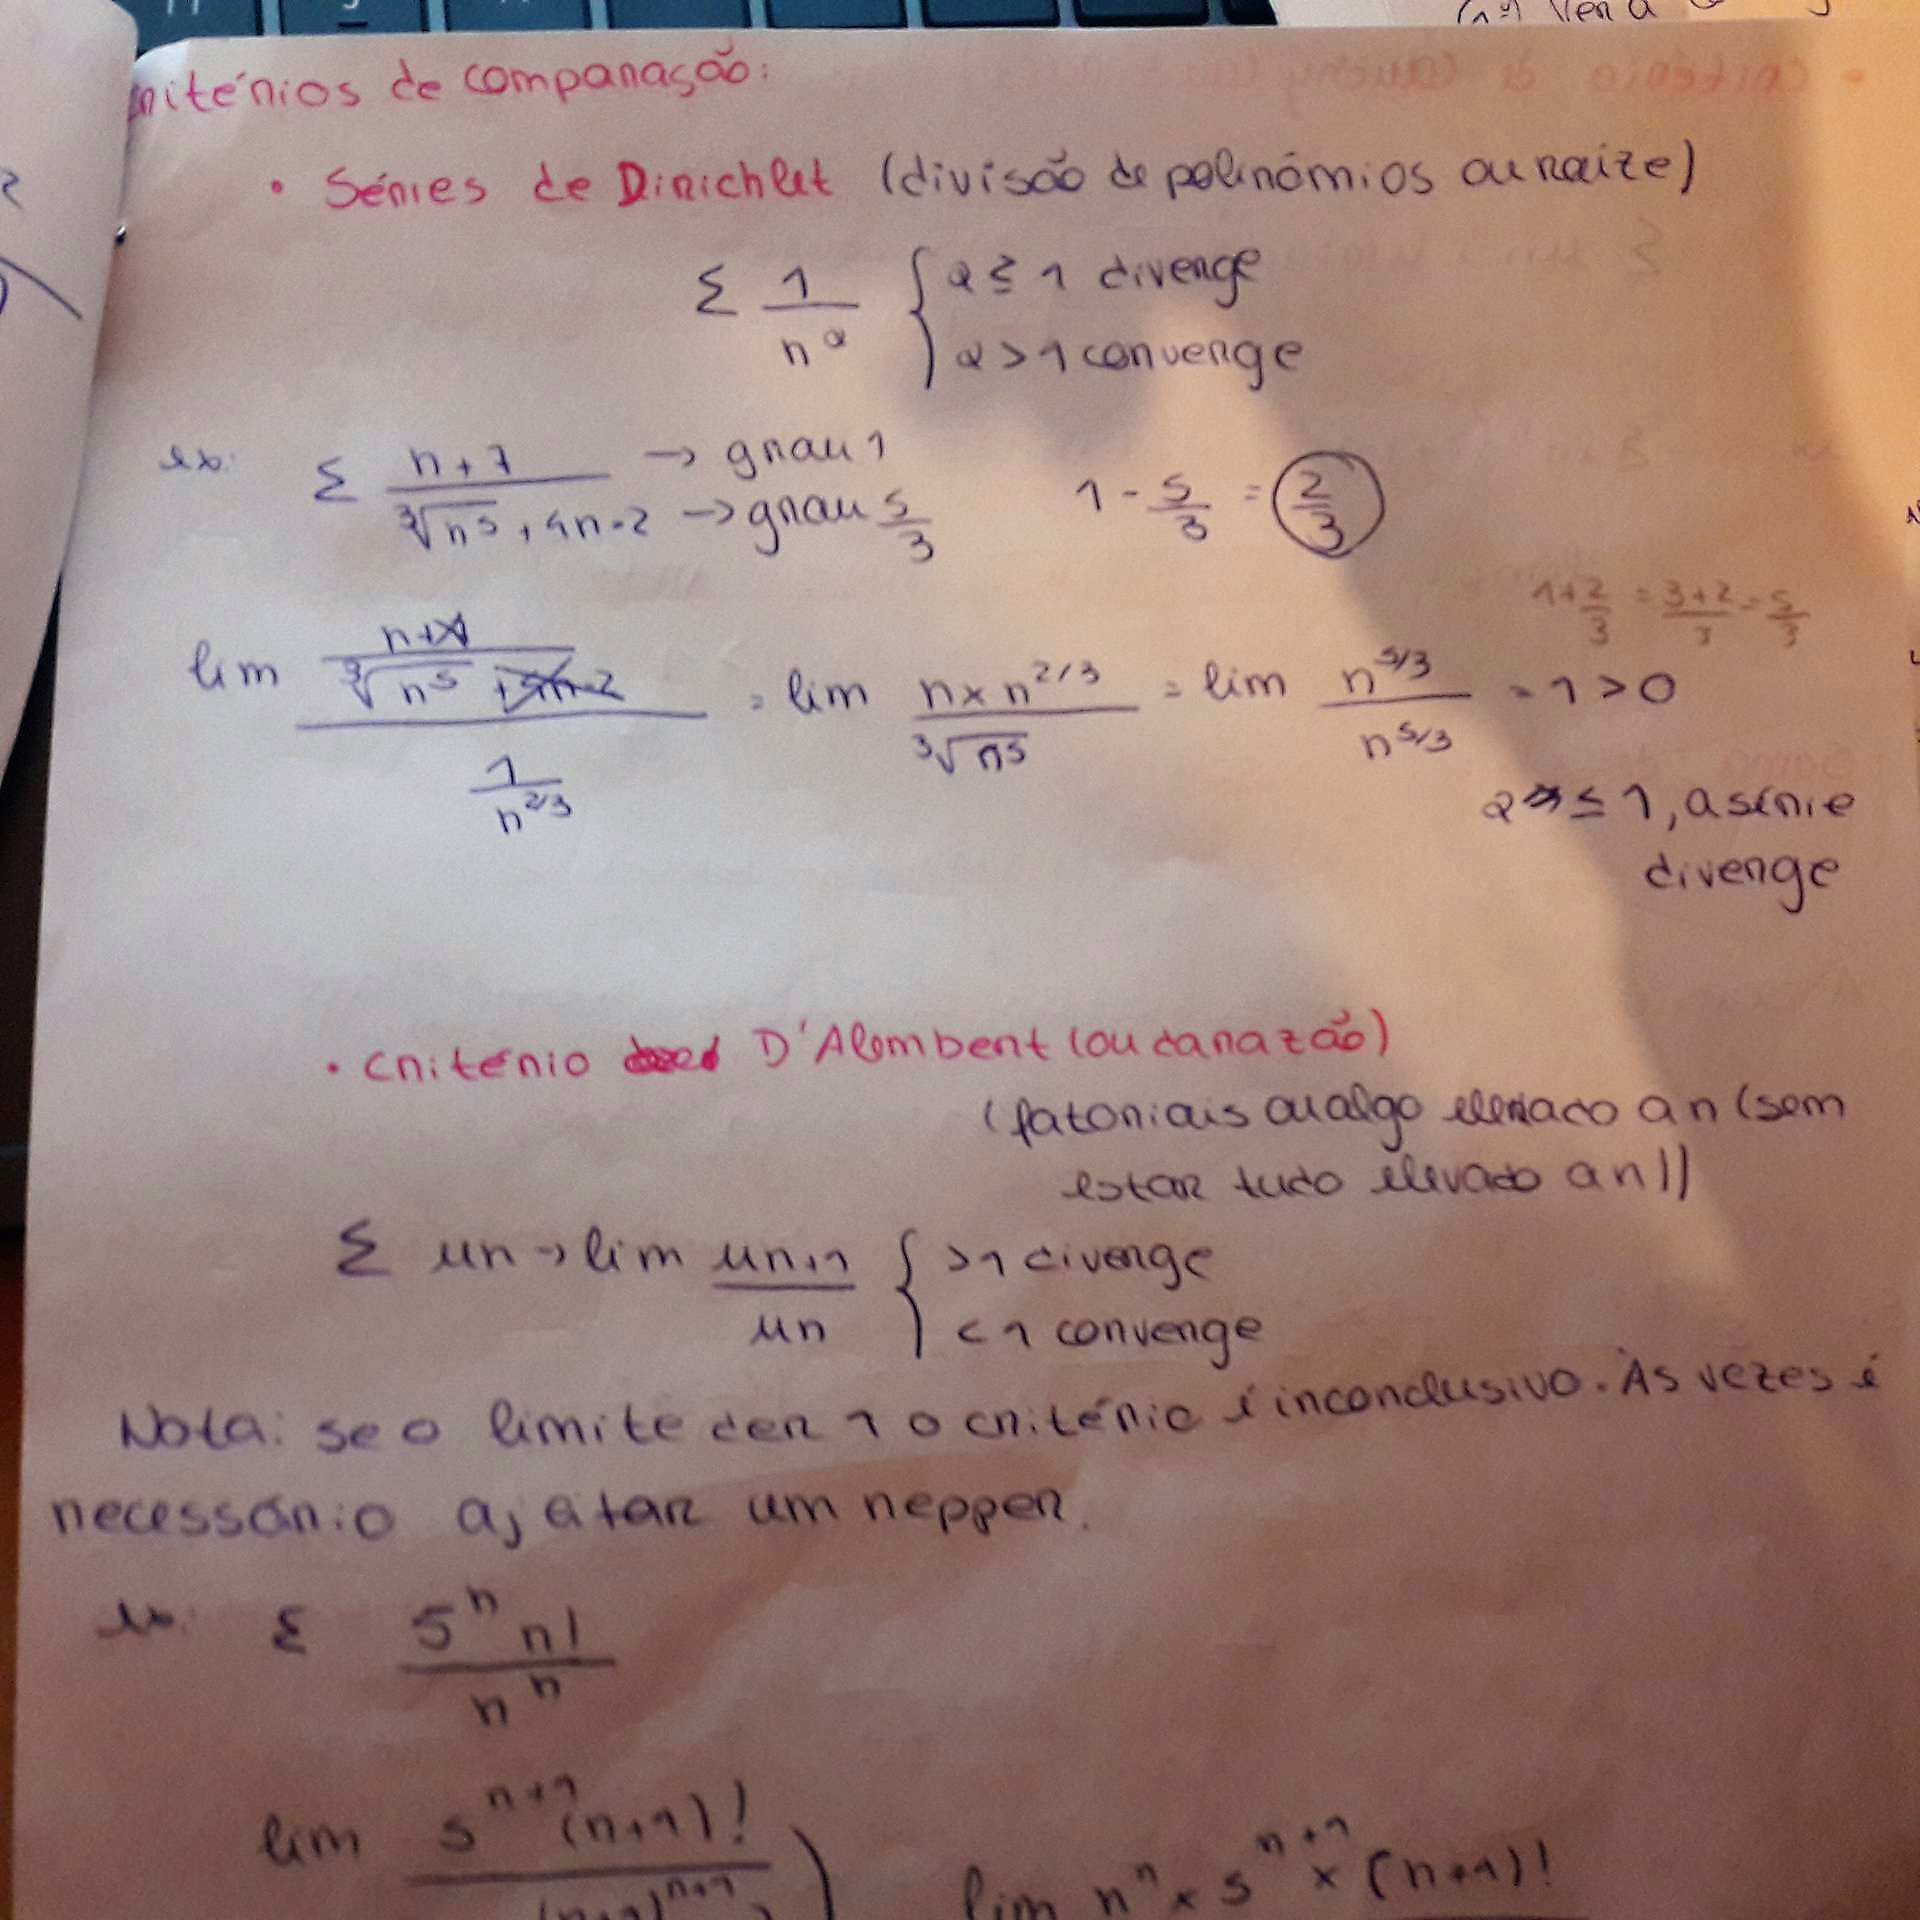 Critérios de comparação:
• Séries de Dirichlet (divisão de polinómios ou raíze)
Σ 1/n^α { α ≤ 1 diverge
α > 1 converge
ex: Σ (n+7)/(∛n⁵+4n-2) → grau 1 → grau 5/3 1 - 5/3 = 2/3
1+2/3 = (3+2)/3 = 5/3
lim ((n+7)/(∛n⁵+4n-2))/(1/n^2/3) = lim (n×n^2/3)/∛n⁵ = lim n^5/3/n^5/3 = 1 > 0
α ≤ 1, a série
diverge
• Critério D'Alembert (ou da razão)
(fatoriais ou algo elevado a n (sem
estar tudo elevado a n))
Σ un → lim un+1/un { >1 diverge
<1 converge
Nota: se o limite der 1 o critério é inconclusivo. Às vezes é
necessário ajeitar um nepper.
ex: Σ 5ⁿ n!/nⁿ
lim 5^n+1 (n+1)!/(n+1)^n+1 lim nⁿ × 5^n+1 × (n+1)!